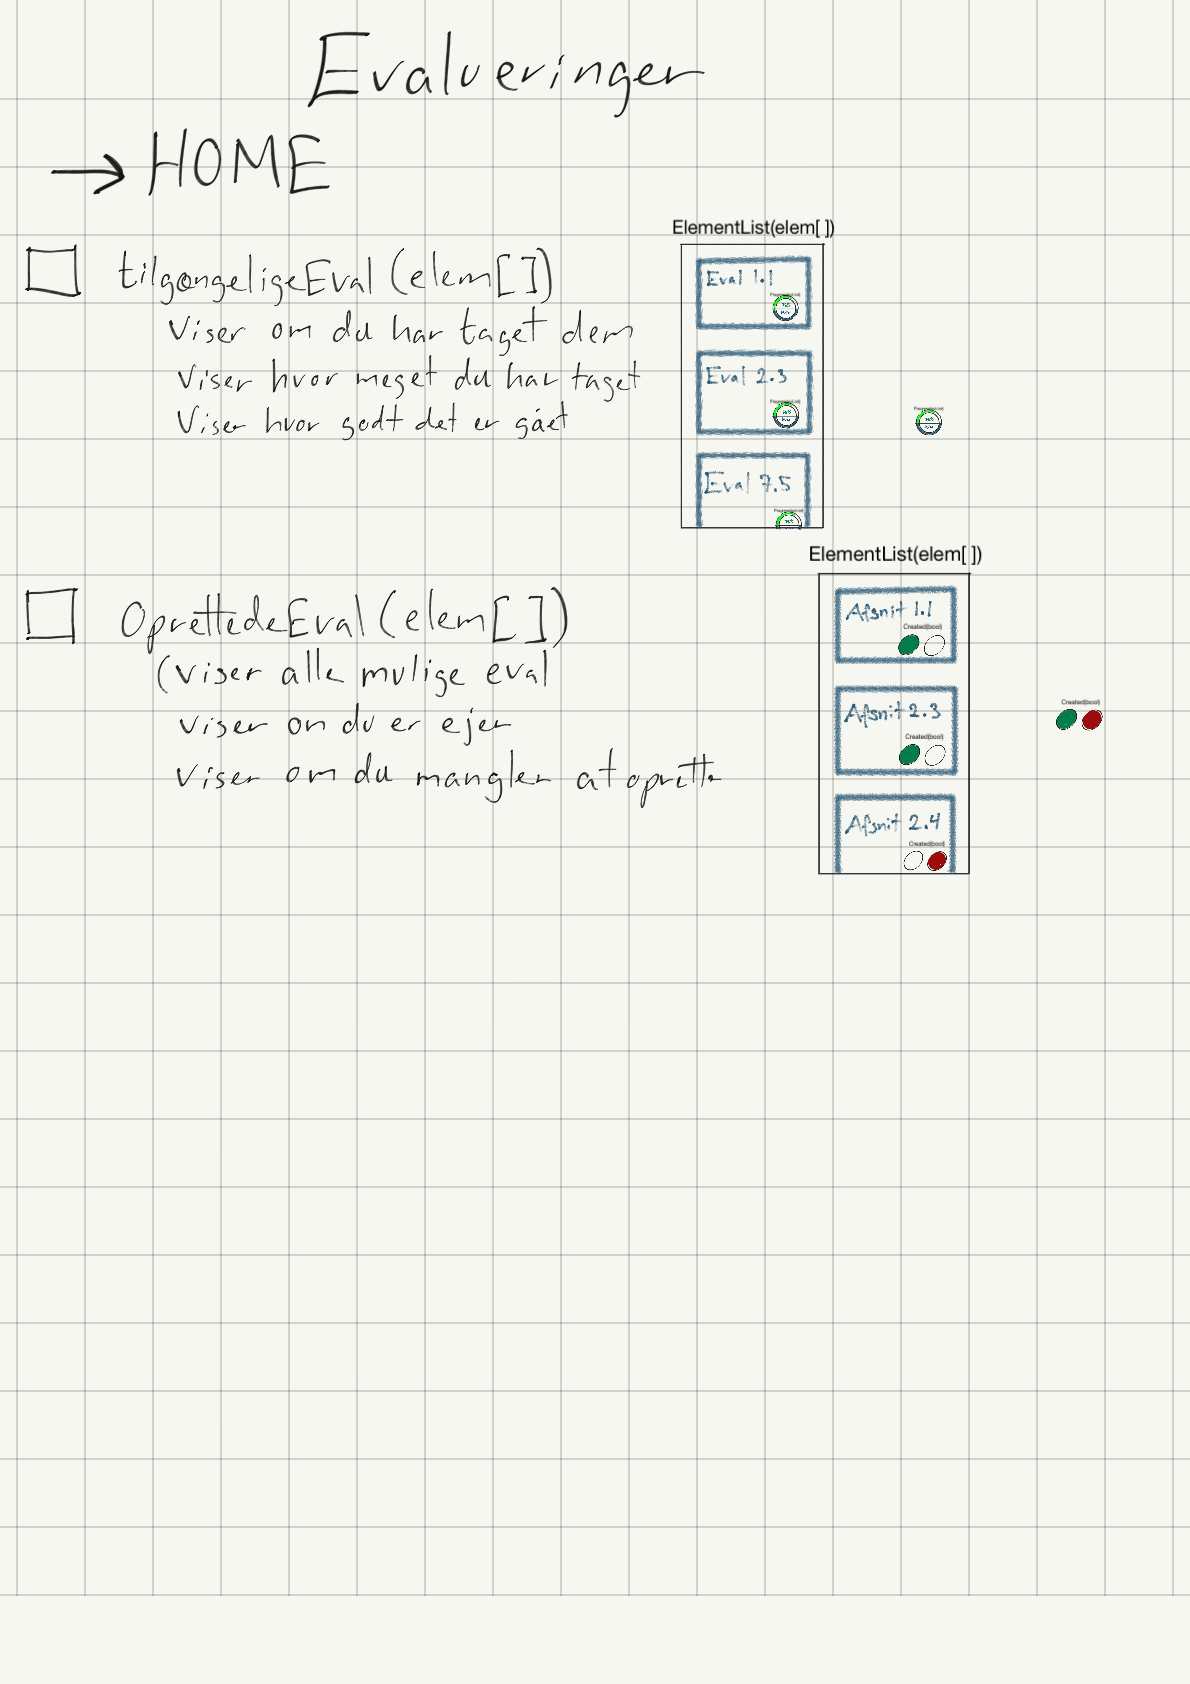 Evalueringer
→ HOME
ElementList(elem[ ])
tilgængeligeEval (elem[])
Viser om du har taget dem
Viser hvor meget du har taget
Viser hvor godt det er gået
Eval 1.1
Eval 2.3
Eval 7.5
ElementList(elem[ ])
OprettedeEval (elem[])
(Viser alle mulige eval
Viser om du er ejer
Viser om du mangler at oprette
Afsnit 1.1
Created(bool)
Afsnit 2.3
Created(bool)
Afsnit 2.4
Created(bool)
Created(bool)